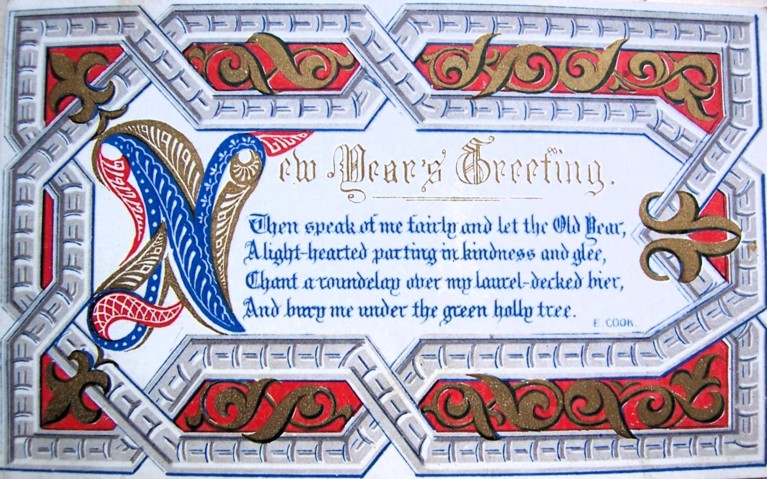 New Year's Greeting.
Then speak of me fairly and let the Old Year,
A light-hearted parting in kindness and glee,
Chant a roundelay over my laurel-decked bier,
And bury me under the green holly tree.
E. COOK.